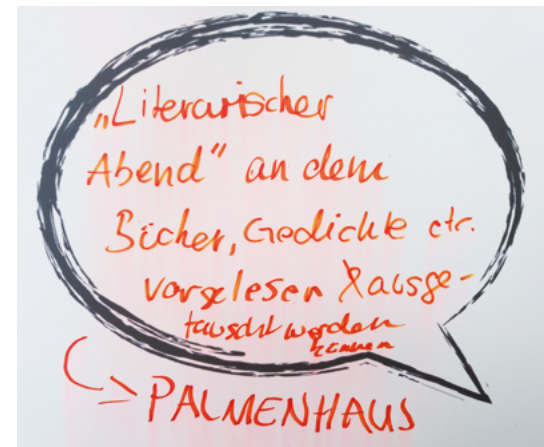 „Literarischer
Abend" an dem
Bücher, Gedichte etc.
vorgelesen & ausge-
tauscht werden
können
PALMENHAUS